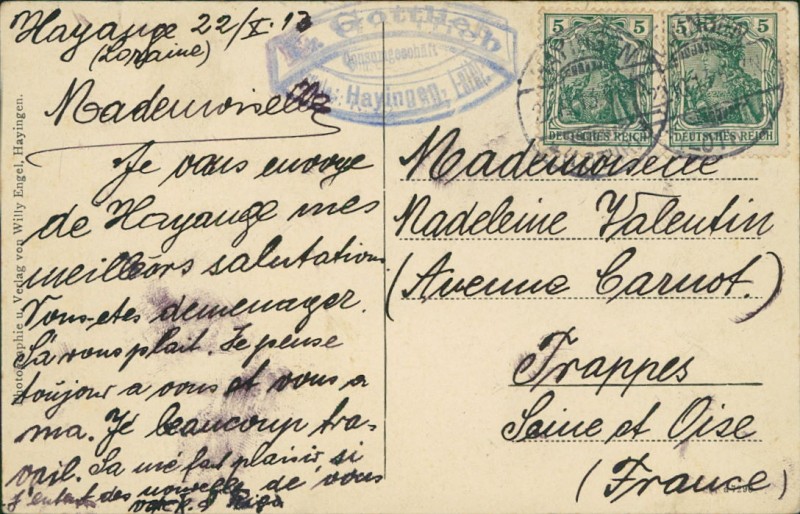 Hayange 22/X.13
(Loraine)
Gottlieb
Consumgeschäft
Hayingen, Lothr.
5 5
DEUTSCHES REICH
5 5
DEUTSCHES REICH
Mademoiselle
Je vous envoye
de Hayange mes
meilleors salutations
Vous-etes demenager.
Sa vous plait. Je pense
toujour a vous et vous a
ma. Je beaucoup tra-
vail. Sa me fait plaisir si
J'entend des nouvelle de vous
Mademoiselle
Madeleine Valentin
(Avenue Carnot.)
Trappes
Seine et Oise
(France)
Photographie u. Verlag von Willy Engel, Hayingen.